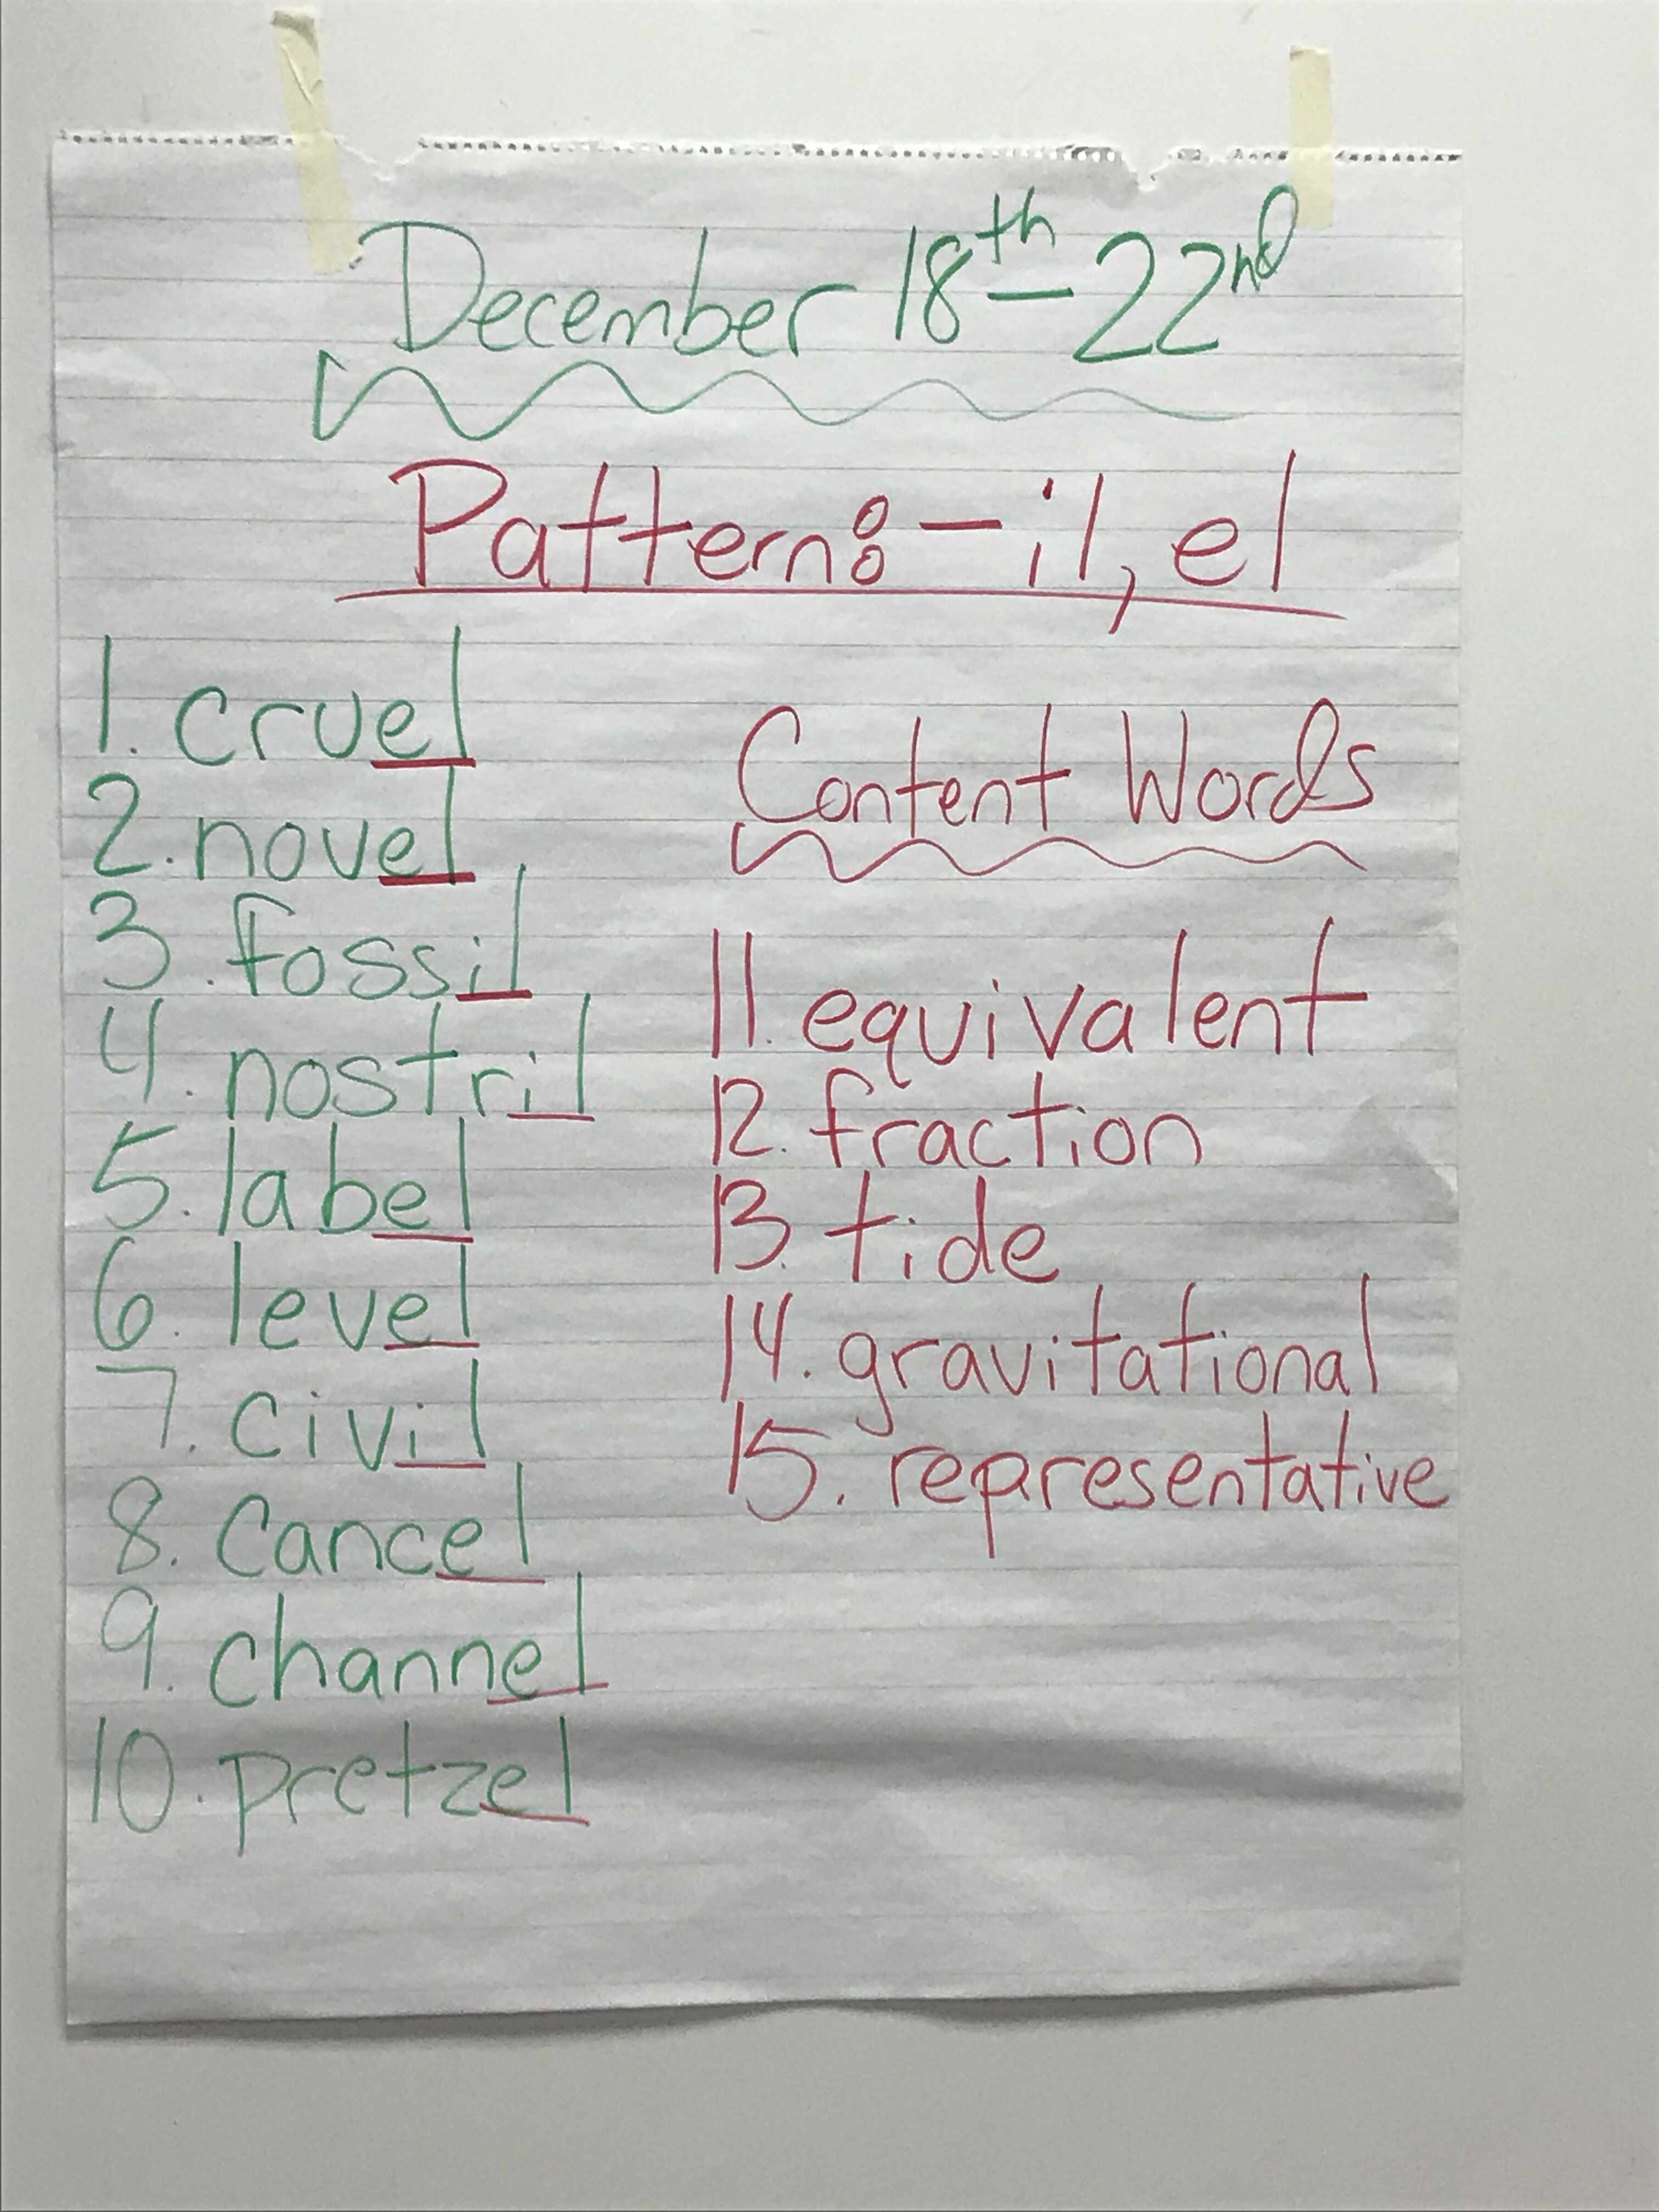 December 18th - 22nd
Pattern: - il, el
1. cruel
2. novel
3. fossil
4. nostril
5. label
6. level
7. civil
8. Cancel
9. channel
10. pretzel
Content Words
11. equivalent
12. fraction
13. tide
14. gravitational
15. representative